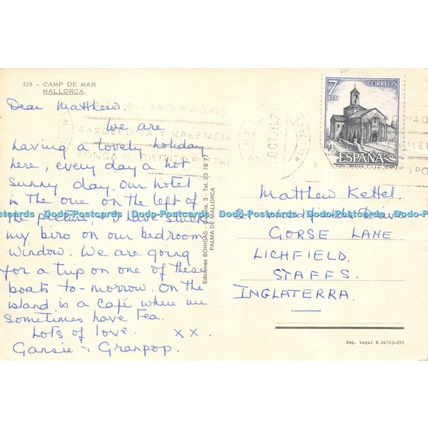 529 - CAMP DE MAR
MALLORCA
Dear Matthew.
We are
having a lovely holiday
here, every day a hot
sunny day. Our hotel
is the one on the left of
the picture, I have stuck
my biro on our bedroom
window. We are going
for a trip on one of these
boats to-morrow. On the
island is a café where we
sometimes have tea.
Lots of love. x x.
Gansie & Granpop.
Ediciones BOHIGAS
Tel. 23 78 77
PALMA DE MALLORCA
7
PTAS
CORREOS
ESPAÑA
BILBAO MADRID
BARCELONA VALENCIA
PONGA DISTRITO POSTAL
Matthew Kettel
GORSE LANE
LICHFIELD.
STAFFS.
INGLATERRA.
Dep. Legal B.26753-XVI
Dodo-Postcards Dodo-Postcards Dodo-Postcards Dodo-Postcards